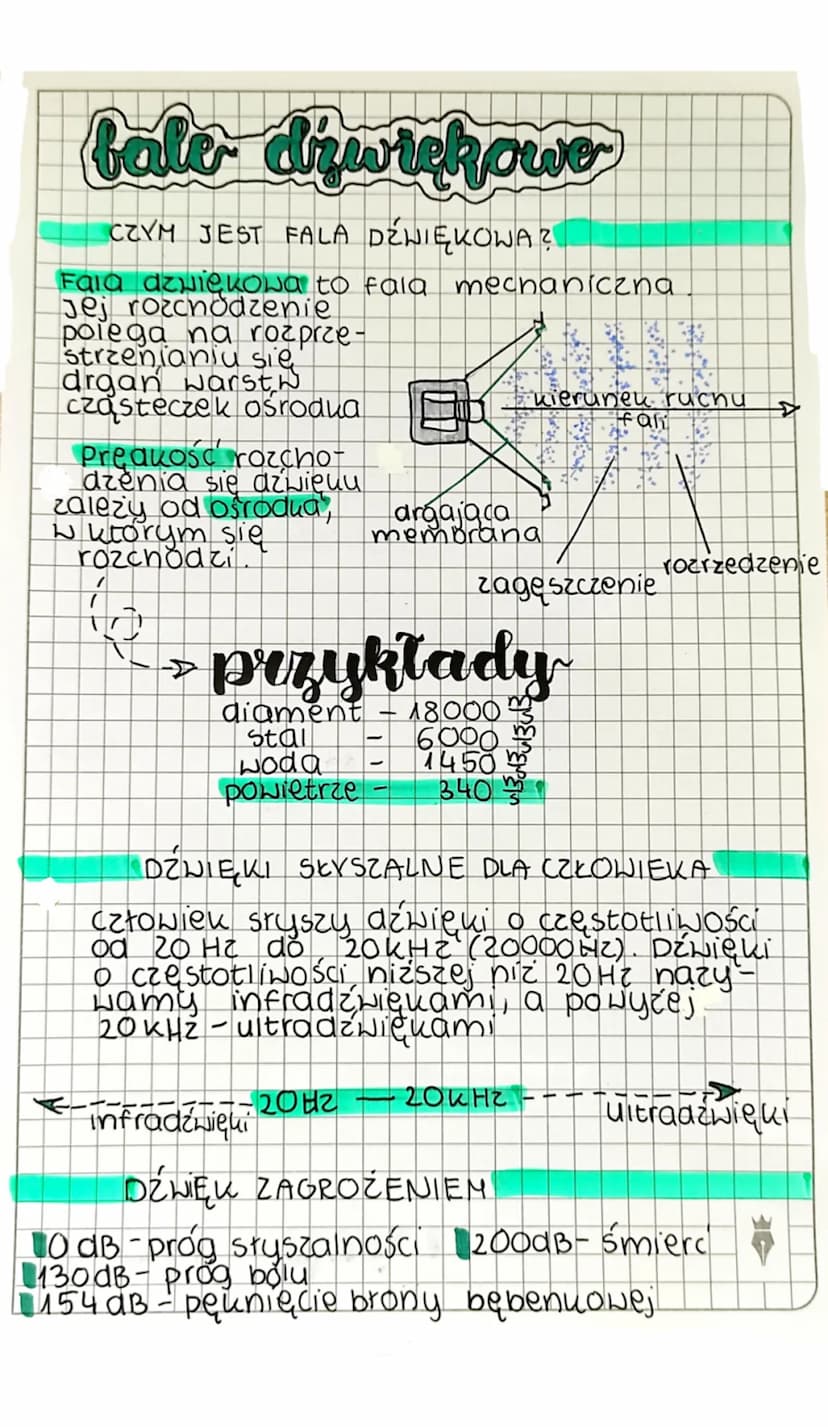 fale dźwiękowe
CZYM JEST FALA DŹWIĘKOWA?
Fala dźwiękowa to fala mechaniczna.
Jej rozchodzenie
polega na rozprze-
strzenianiu się
drgań warstw
cząsteczek ośrodka
kierunek ruchu
fali
Prędkość rozcho-
dzenia się dźwięku
zależy od ośrodka,
w którym się
rozchodzi.
drgająca
membrana
zagęszczenie
rozrzedzenie
przykłady
diament - 18000 m/s
stal - 6000 m/s
woda - 1450 m/s
powietrze - 340 m/s
DŹWIĘKI SŁYSZALNE DLA CZŁOWIEKA
człowiek słyszy dźwięki o częstotliwości
od 20 Hz do 20kHz (20000Hz). Dźwięki
o częstotliwości niższej niż 20Hz nazy-
wamy infradźwiękami, a powyżej
20kHz - ultradźwiękami
infradźwięki 20Hz — 20kHz ultradźwięki
DŹWIĘK ZAGROŻENIEM
0 dB - próg słyszalności 200dB - śmierć
130dB - próg bólu
154dB - pęknięcie brony bębenkowej